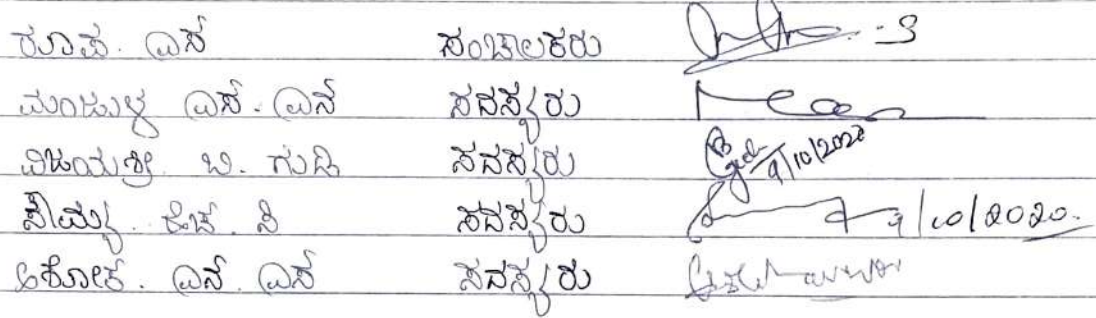 ರೂಪ. ಎಸ್ ಸಂಚಾಲಕರು
ಮಂಜುಳ ಎಸ್. ಎನ್ ಸದಸ್ಯರು
ವಿಜಯಶ್ರೀ ಬಿ. ಗುಡಿ ಸದಸ್ಯರು 9/10/2020
ಸೌಮ್ಯ. ಹೆಚ್. ಸಿ ಸದಸ್ಯರು 9/10/2020.
ಅಶೋಕ. ಎನ್. ಎಸ್ ಸದಸ್ಯರು